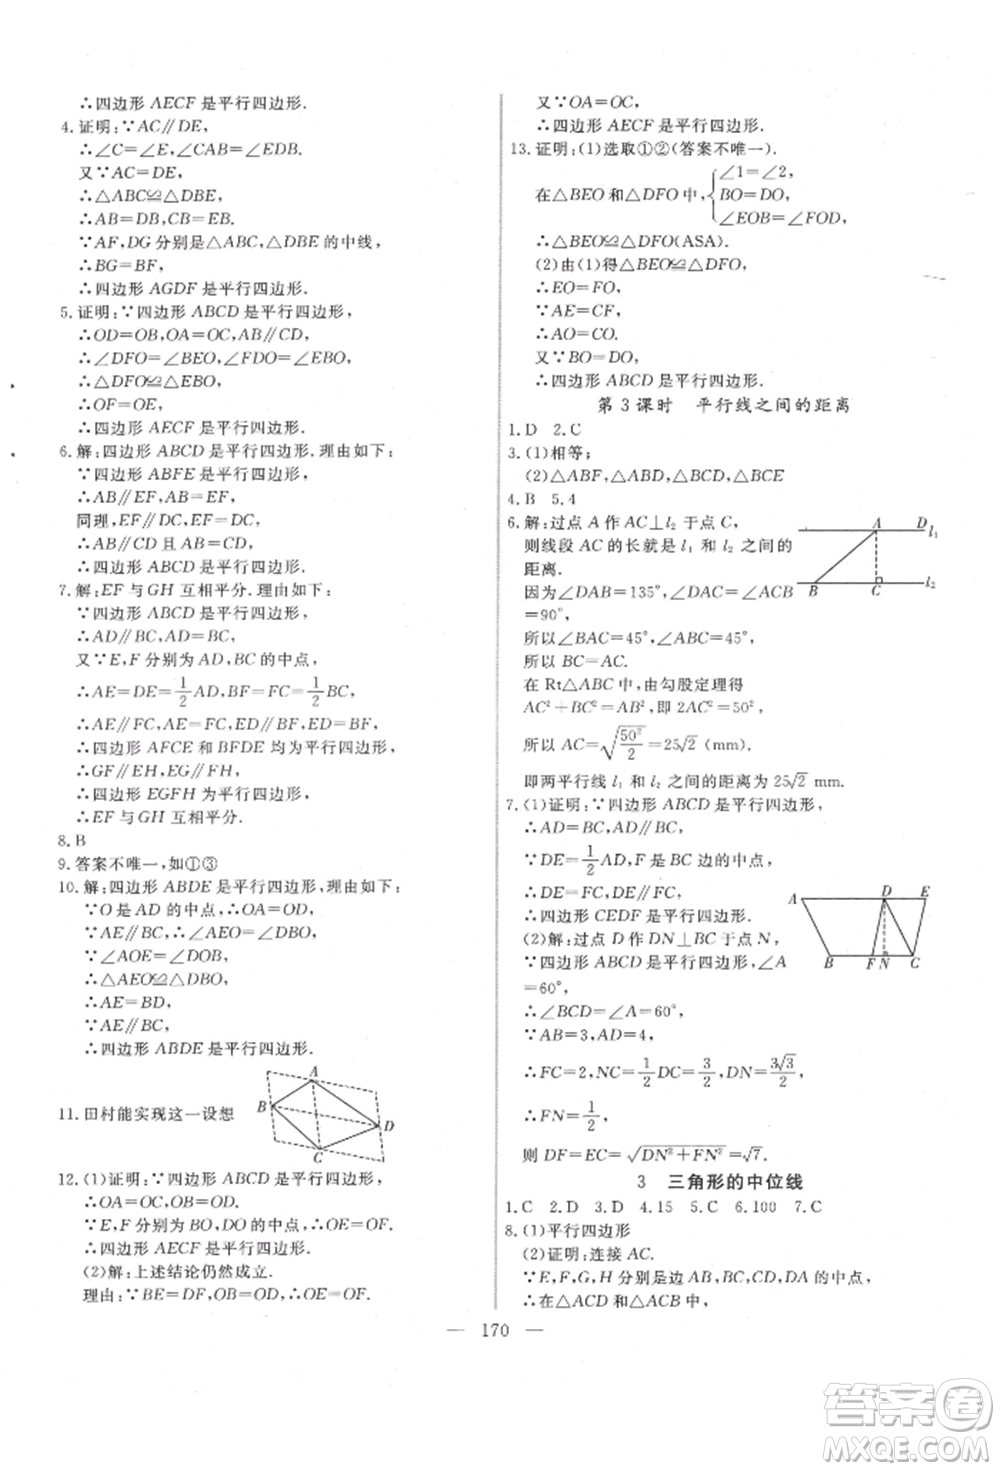 ∴四边形 AECF 是平行四边形.
4.证明:∵AC∥DE,
∴∠C=∠E,∠CAB=∠EDB.
又∵AC=DE,
∴△ABC≌△DBE,
∴AB=DB,CB=EB.
∵AF,DG 分别是△ABC,△DBE 的中线,
∴BG=BF,
∴四边形 AGDF 是平行四边形.
5.证明:∵四边形 ABCD 是平行四边形,
∴OD=OB,OA=OC,AB∥CD,
∴∠DFO=∠BEO,∠FDO=∠EBO,
∴△DFO≌△EBO,
∴OF=OE,
∴四边形 AECF 是平行四边形.
6.解:四边形 ABCD 是平行四边形.理由如下:
∵四边形 ABFE 是平行四边形,
∴AB∥EF,AB=EF,
同理,EF∥DC,EF=DC,
∴AB∥CD 且 AB=CD,
∴四边形 ABCD 是平行四边形.
7.解:EF 与 GH 互相平分.理由如下:
∵四边形 ABCD 是平行四边形,
∴AD∥BC,AD=BC,
又∵E,F 分别为 AD,BC 的中点,
∴AE=DE=1/2 AD,BF=FC=1/2 BC,
∴AE∥FC,AE=FC,DE∥BF,DE=BF,
∴四边形 AFCE 和 BFDE 均为平行四边形,
∴GF∥EH,EG∥FH,
∴四边形 EGFH 为平行四边形,
∴EF 与 GH 互相平分.
8.B
9.答案不唯一,如①③
10.解:四边形 ABDE 是平行四边形,理由如下:
∵O 是 AD 的中点,∴OA=OD,
∵AE∥BC,∴∠AEO=∠DBO,
∵∠AOE=∠DOB,
∴△AEO≌△DBO,
∴AE=BD,
∵AE∥BC,
∴四边形 ABDE 是平行四边形.
A
B
D
C
11.田村能实现这一设想
12.(1)证明:∵四边形 ABCD 是平行四边形,
∴OA=OC,OB=OD,
∵E,F 分别为 BO,DO 的中点,∴OE=OF,
∴四边形 AECF 是平行四边形.
(2)解:上述结论仍然成立.
理由:∵BE=DF,OB=OD,∴OE=OF.
又∵OA=OC,
∴四边形 AECF 是平行四边形.
13.证明:(1)选取①②(答案不唯一).
在△BEO 和△DFO 中,{∠1=∠2,
BO=DO,
∠EOB=∠FOD,
∴△BEO≌△DFO(ASA).
(2)由(1)得△BEO≌△DFO,
∴EO=FO,
∵AE=CF,
∴AO=CO.
又∵BO=DO,
∴四边形 ABCD 是平行四边形.
第 3 课时 平行线之间的距离
1.D 2.C
3.(1)相等;
(2)△ABF,△ABD,△BCD,△BCE
4.B 5.4
6.解:过点 A 作 AC⊥l₂ 于点 C,
则线段 AC 的长就是 l₁ 和 l₂ 之间的
距离.
因为∠DAB=135°,∠DAC=∠ACB
=90°,
所以∠BAC=45°,∠ABC=45°.
所以 BC=AC.
在 Rt△ABC 中,由勾股定理得
AC²+BC²=AB²,即 2AC²=50²,
所以 AC=√(50²/2)=25√2 (mm).
即两平行线 l₁ 和 l₂ 之间的距离为 25√2 mm.
A D l₁
B C l₂
7.(1)证明:∵四边形 ABCD 是平行四边形,
∴AD=BC,AD∥BC,
∵DE=1/2 AD,F 是 BC 边的中点,
∴DE=FC,DE∥FC,
∴四边形 CEDF 是平行四边形.
(2)解:过点 D 作 DN⊥BC 于点 N,
∵四边形 ABCD 是平行四边形,∠A
=60°,
∴∠BCD=∠A=60°,
∵AB=3,AD=4,
∴FC=2,NC=1/2 DC=3/2,DN=3√3/2,
∴FN=1/2,
则 DF=EC=√(DN²+FN²)=√7.
A D E
B F N C
3 三角形的中位线
1.C 2.D 3.D 4.15 5.D 6.100 7.C
8.(1)平行四边形
(2)证明:连接 AC.
∵E,F,G,H 分别是边 AB,BC,CD,DA 的中点,
∴在△ACD 和△ACB 中,
— 170 —
答案圈
MXQE.COM